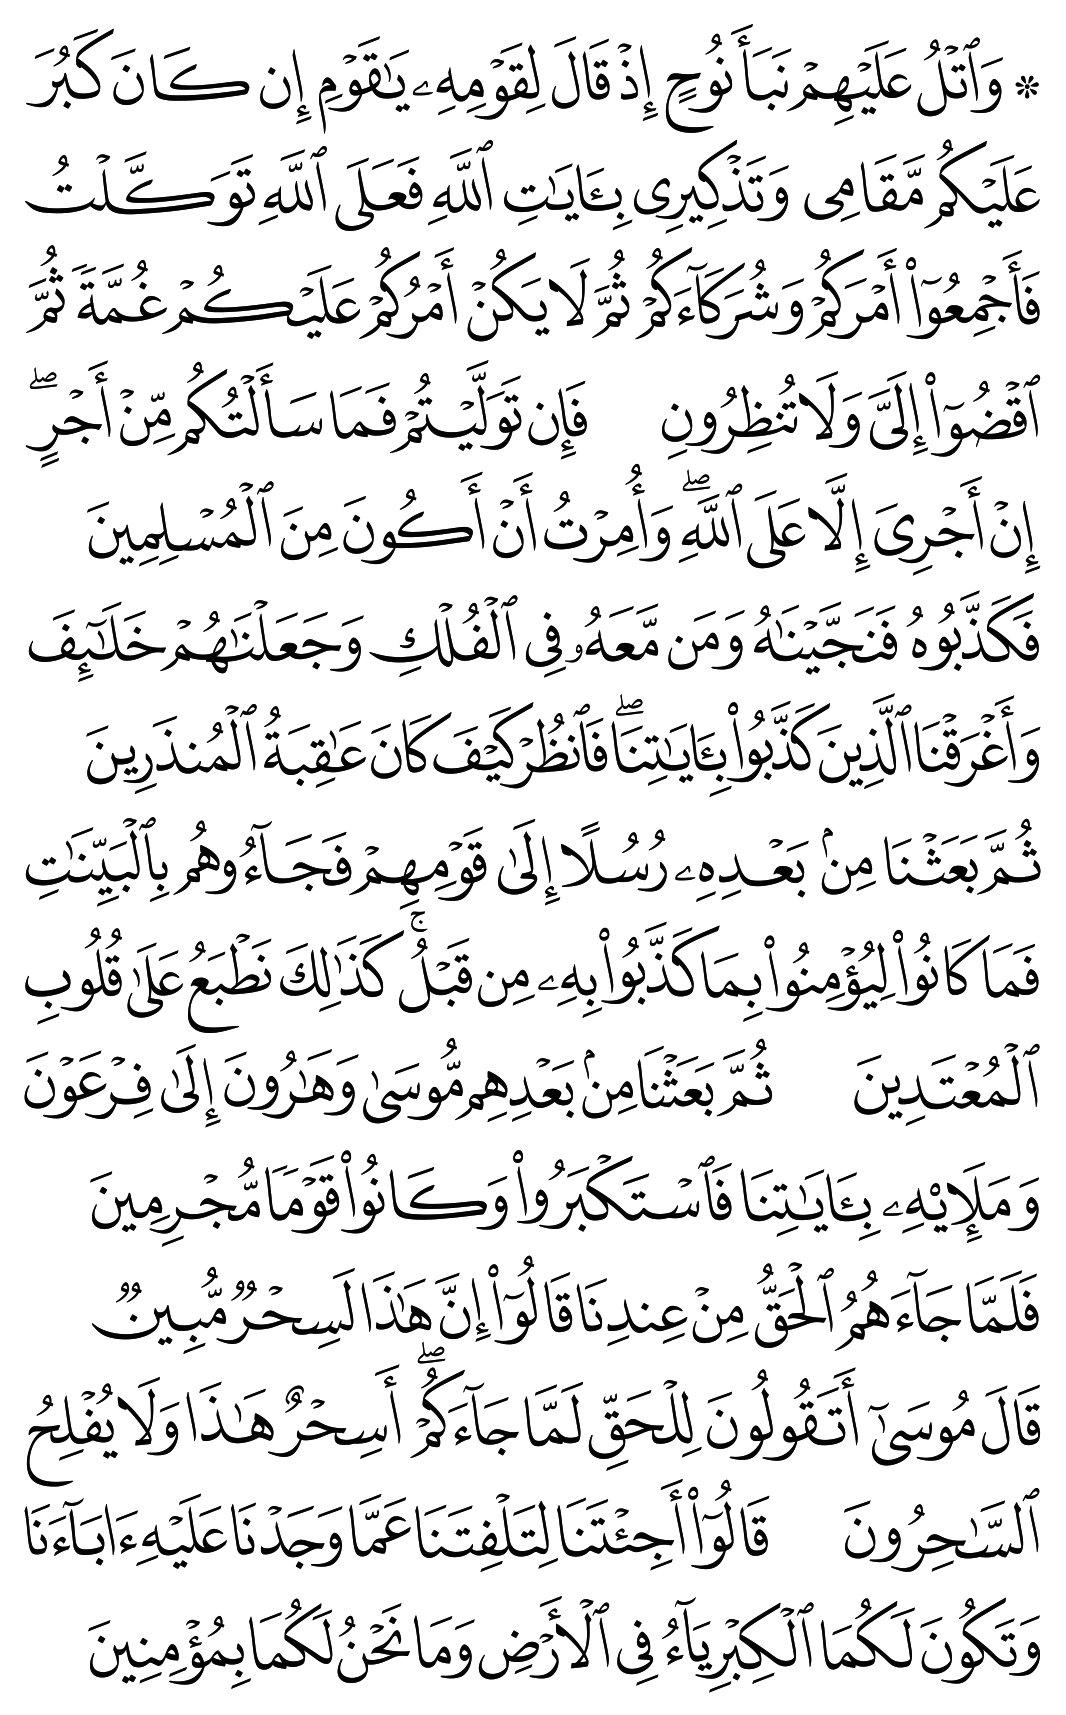 * وَٱتۡلُ عَلَيۡهِمۡ نَبَأَ نُوحٍ إِذۡ قَالَ لِقَوۡمِهِۦ يَٰقَوۡمِ إِن كَانَ كَبُرَ
عَلَيۡكُم مَّقَامِي وَتَذۡكِيرِي بِـَٔايَٰتِ ٱللَّهِ فَعَلَى ٱللَّهِ تَوَكَّلۡتُ
فَأَجۡمِعُوٓاْ أَمۡرَكُمۡ وَشُرَكَآءَكُمۡ ثُمَّ لَا يَكُنۡ أَمۡرُكُمۡ عَلَيۡكُمۡ غُمَّةٗ ثُمَّ
ٱقۡضُوٓاْ إِلَيَّ وَلَا تُنظِرُونِ فَإِن تَوَلَّيۡتُمۡ فَمَا سَأَلۡتُكُم مِّنۡ أَجۡرٍۖ
إِنۡ أَجۡرِيَ إِلَّا عَلَى ٱللَّهِۖ وَأُمِرۡتُ أَنۡ أَكُونَ مِنَ ٱلۡمُسۡلِمِينَ
فَكَذَّبُوهُ فَنَجَّيۡنَٰهُ وَمَن مَّعَهُۥ فِي ٱلۡفُلۡكِ وَجَعَلۡنَٰهُمۡ خَلَٰٓئِفَ
وَأَغۡرَقۡنَا ٱلَّذِينَ كَذَّبُواْ بِـَٔايَٰتِنَاۖ فَٱنظُرۡ كَيۡفَ كَانَ عَٰقِبَةُ ٱلۡمُنذَرِينَ
ثُمَّ بَعَثۡنَا مِنۢ بَعۡدِهِۦ رُسُلًا إِلَىٰ قَوۡمِهِمۡ فَجَآءُوهُم بِٱلۡبَيِّنَٰتِ
فَمَا كَانُواْ لِيُؤۡمِنُواْ بِمَا كَذَّبُواْ بِهِۦ مِن قَبۡلُۚ كَذَٰلِكَ نَطۡبَعُ عَلَىٰ قُلُوبِ
ٱلۡمُعۡتَدِينَ ثُمَّ بَعَثۡنَا مِنۢ بَعۡدِهِم مُّوسَىٰ وَهَٰرُونَ إِلَىٰ فِرۡعَوۡنَ
وَمَلَإِيْهِۦ بِـَٔايَٰتِنَا فَٱسۡتَكۡبَرُواْ وَكَانُواْ قَوۡمٗا مُّجۡرِمِينَ
فَلَمَّا جَآءَهُمُ ٱلۡحَقُّ مِنۡ عِندِنَا قَالُوٓاْ إِنَّ هَٰذَا لَسِحۡرٞ مُّبِينٞ
قَالَ مُوسَىٰٓ أَتَقُولُونَ لِلۡحَقِّ لَمَّا جَآءَكُمۡۖ أَسِحۡرٌ هَٰذَا وَلَا يُفۡلِحُ
ٱلسَّٰحِرُونَ قَالُوٓاْ أَجِئۡتَنَا لِتَلۡفِتَنَا عَمَّا وَجَدۡنَا عَلَيۡهِ ءَابَآءَنَا
وَتَكُونَ لَكُمَا ٱلۡكِبۡرِيَآءُ فِي ٱلۡأَرۡضِ وَمَا نَحۡنُ لَكُمَا بِمُؤۡمِنِينَ